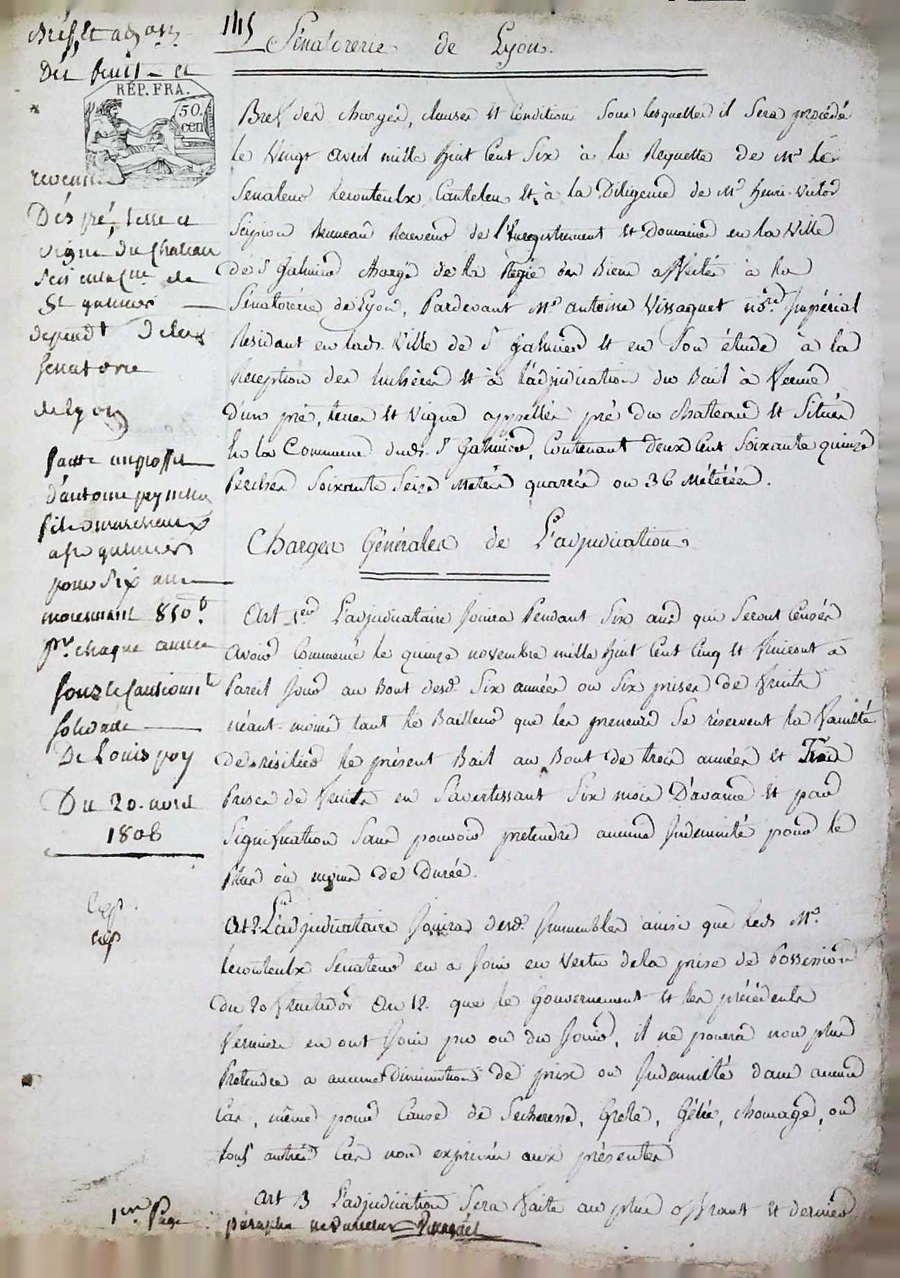 145
Sénatorerie de Lyon.
REP. FRA.
50
cen
Bref des charges, clauses et conditions sous lesquelles il sera procédé
le Vingt avril mille huit Cent Six à la Requette de Mr le
Senateur Lecouteulx Canteleu et à la Diligence de Mr henri Victor
Scipion Receveur de l'Enregistrement et Domaines en la Ville
de St Galmier chargé de la Régie des Biens affectés à la
Sénatorerie de Lyon, Pardevant Me antoine Vissaguet nore Impérial
Résidant en lade Ville de St Galmier et en Son étude à la
Réception des Enchères et à l'adjudication du Bail à Ferme
D'un pré, terre et Vigne appellés pré du chateau et Situés
En la Commune dud. St Galmier, Contenant Deux Cent Soixante quinze
Perches Soixante Seize Metres quarrés ou 36 Métérées.
Charges Générales de L'adjudication
Art 1er L'adjudicataire Jouira Pendant Six ans qui Seront Censés
Avoir Commencé le quinze novembre mille huit Cent Cinq et finiront à
Pareil Jour au Bout desd. Six années ou Six prises de fruits
néant-moins tant le Bailleur que les preneurs Se réservent la faculté
de résilier le présent Bail au Bout de trois années et Trois
Prises de fruits en S'avertissant Six mois D'avance et par
Signification Sans pouvoir pretendre aucune Indemnité pour le
Plus ou moins de Durée.
Art 2 L'adjudicataire Jouira desd. Immeubles ainsi que led. Mr
Lecouteulx Senateur en a Joui en Vertu de la prise de possession
du 20 fructidor An 12. que le Gouvernement et les précédents
Fermiers en ont Joui pu ou du Jouir, il ne pourra non plus
Pretendre a aucune Diminution de prix ou Indemnité dans aucun
Cas, même pour Cause de Secheresse, Grele, Gélée, chomage, ou
tous autres Cas non exprimés aux présentes
Art 3 L'adjudication Sera faite au plus offrant et dernier
Des pré, terre et
vigne du chateau
de
St galmier
dependt de la
senatorie
de lyon
passé au proffit
d'antoine
fils
a St galmier
pour six ans
moiennant 850 f
pr chaque année
sous le cautionnt
solidaire
De Louis poy
Du 20. avril
1806
1ere Page